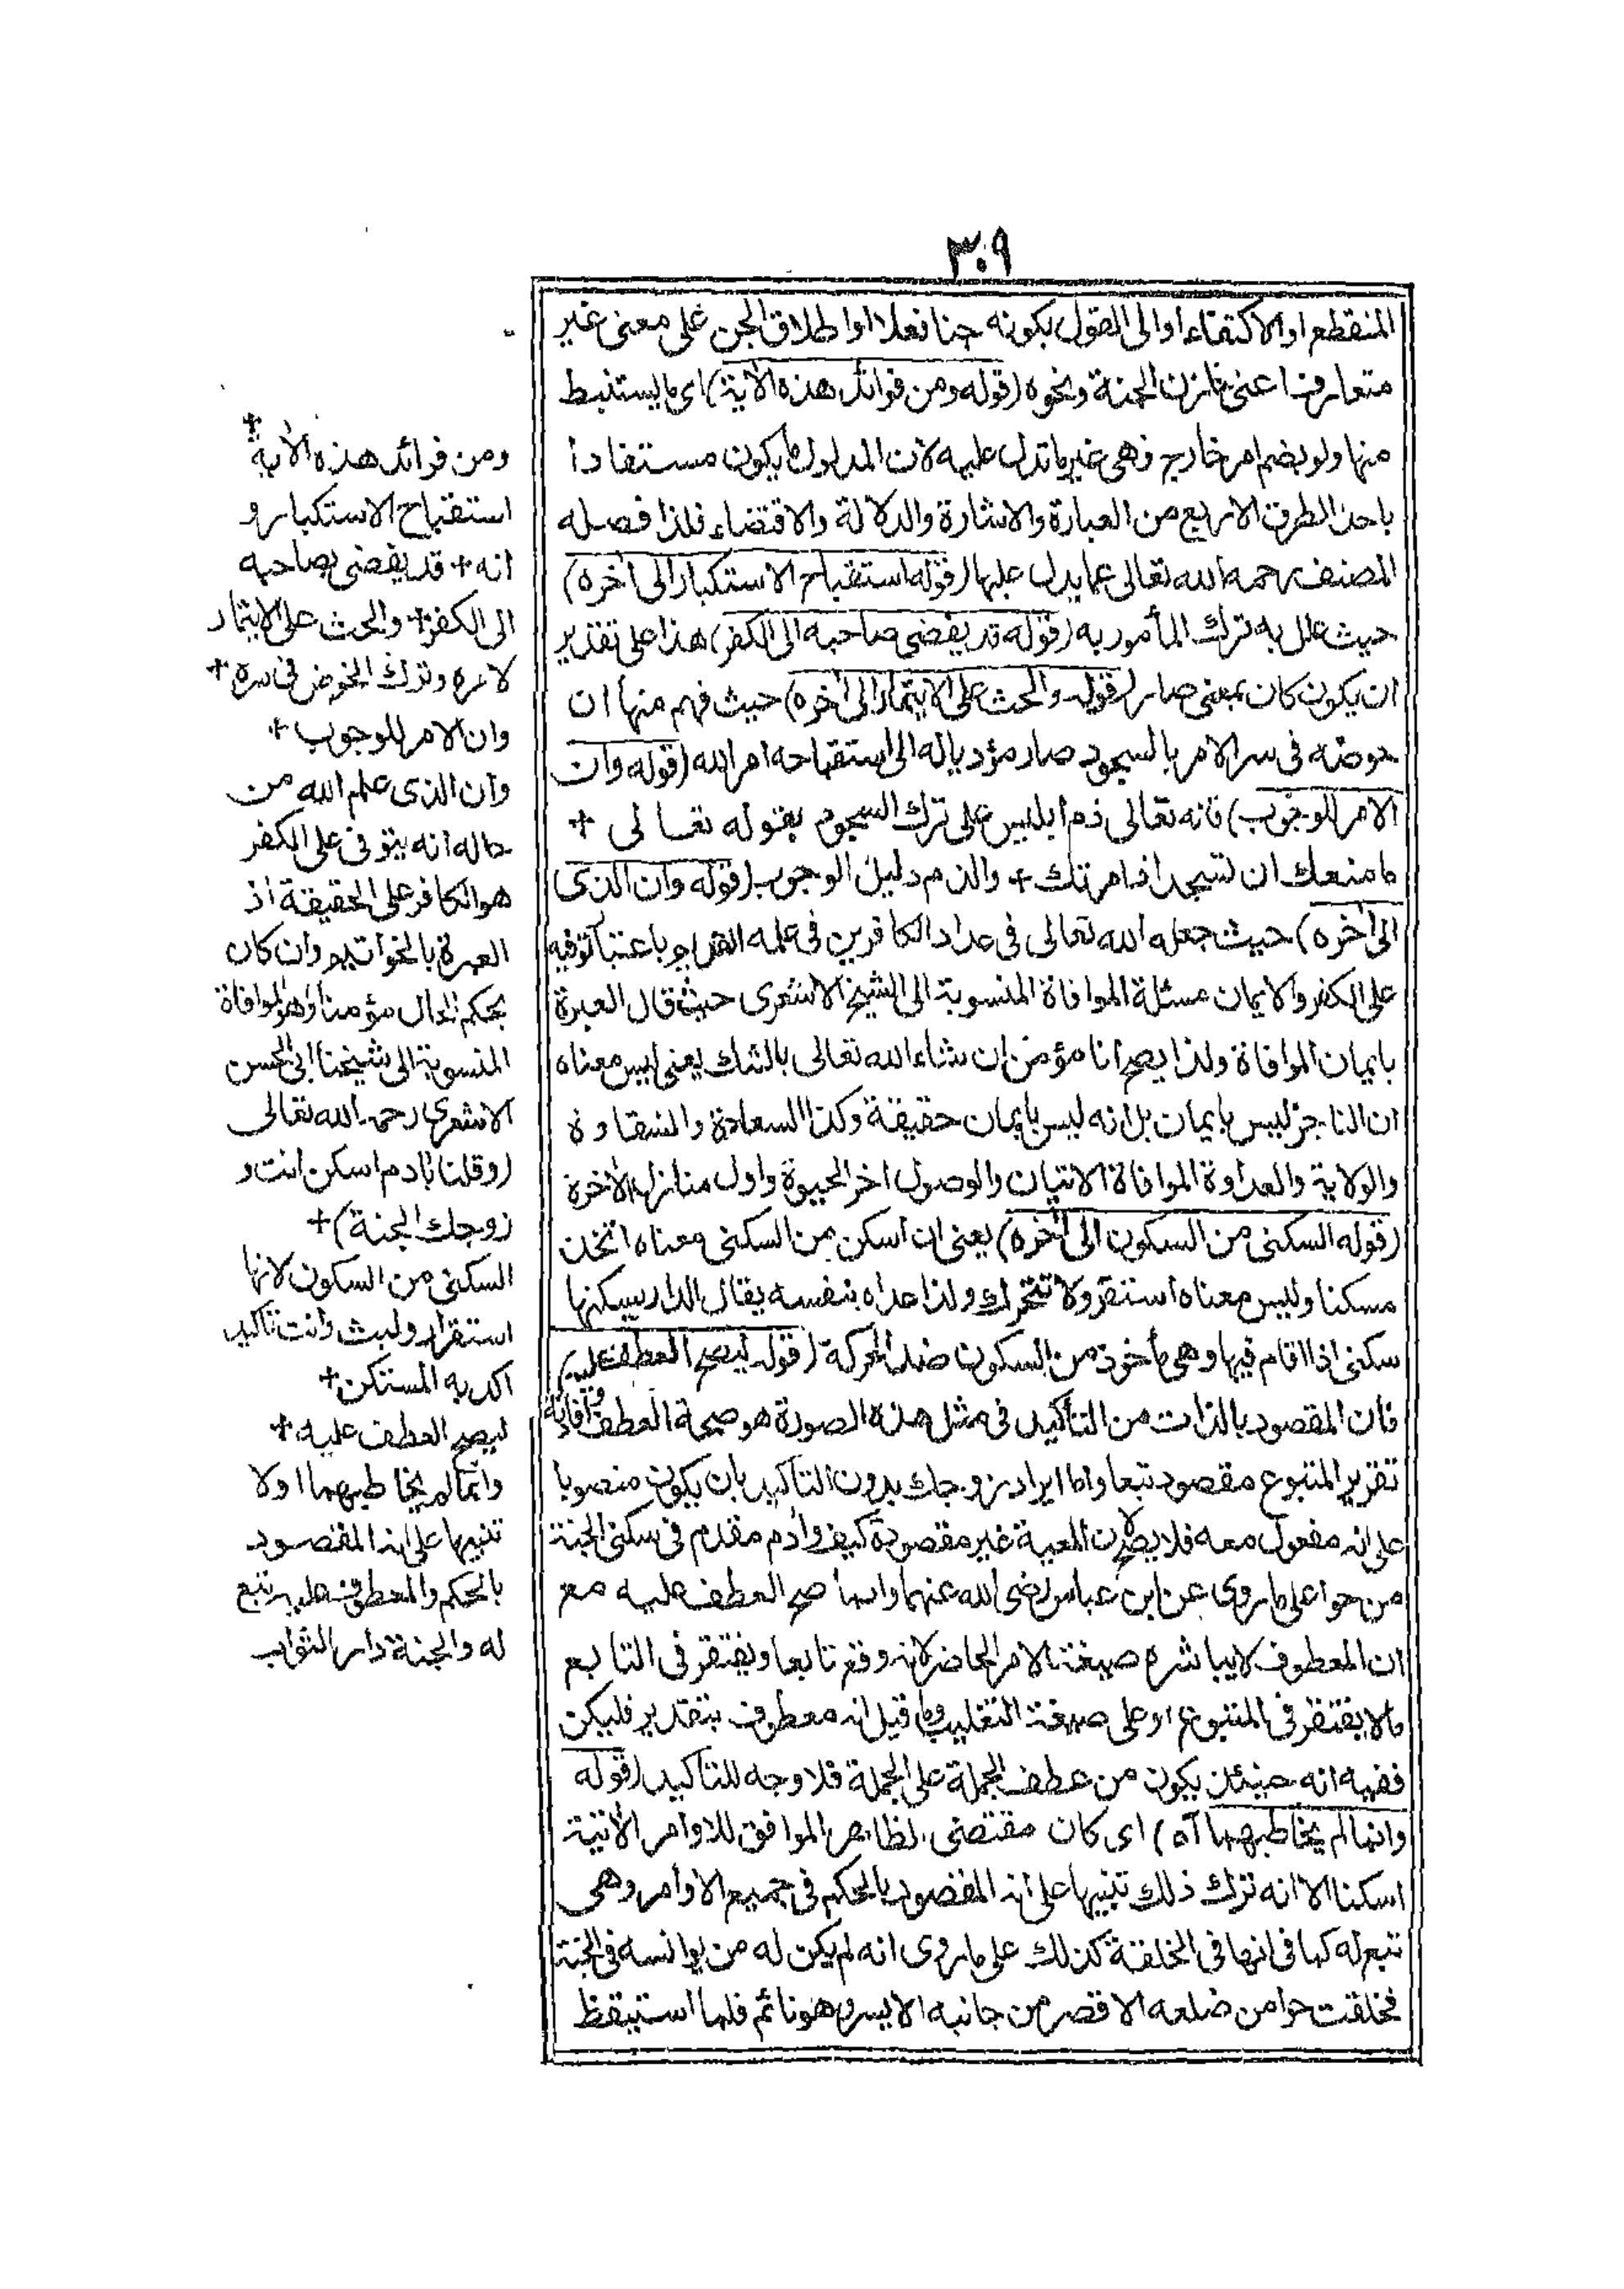 ٣٠٩
المنقطع او الاكتفاء او الى القول بكونه جنا فعلا او اطلاق الجن على معنى غير
متعارف اعنى خازن الجنة ونحوه (قوله ومن فوائد هذه الآية) اى ما يستنبط
منها ولو بضم امر خارج وهى غير ما تدل عليه لان المدلول ما يكون مستفادا
باحد الطرق الاربع من العبارة والاشارة والدلالة والاقتضاء فلذا فصله
المصنف رحمه الله تعالى عما يدل عليها (قوله استقباح الاستكبار الى آخره)
حيث علل به ترك المأمور به (قوله قد يفضى صاحبه الى الكفر) هذا على تقدير
ان يكون كان بمعنى صار (قوله والحث على الايتمار الى آخره) حيث فهم منها ان
خوضه فى سر الامر بالسجود صار مؤديا له الى استقباحه امر الله (قوله وان
الامر للوجوب) فانه تعالى ذم ابليس على ترك السجود بقوله تعالى +
ما منعك ان تسجد اذ امرتك + والذم دليل الوجوب (قوله وان الذى
الى آخره) حيث جعله الله تعالى فى عداد الكافرين فى علمه القديم باعتبار توفيه
على الكفر والايمان مسئلة الموافاة المنسوبة الى الشيخ الاشعرى حيث قال العبرة
بايمان الموافاة ولذا يصح انا مؤمن ان شاء الله تعالى بالشك يعنى ليس معناه
ان الناجز ليس بايمان بل انه ليس بايمان حقيقة وكذا السعادة والشقاوة
والولاية والعداوة الموافاة الاتيان والوصول اخر الحيوة واول منازل الآخرة
(قوله السكنى من السكون الى آخره) يعنى ان اسكن من السكنى ومعناه اتخذ
مسكنا وليس معناه استقر ولا تتحرك ولذا عداه بنفسه يقال الدار يسكنها
سكنى اذا اقام فيها وهى مأخوذ من السكون ضد الحركة (قوله ليصح العطف عليه)
فان المقصود بالذات من التأكيد فى مثل هذه الصورة هو صحة العطف وافادته
تقرير المتبوع مقصود تبعا واما ايراد زوجك بدون التأكيد بان يكون منصوبا
على انه مفعول معه فلا يصح لان المعية غير مقصودة كيف وآدم مقدم فى سكنى الجنة
من حوا على ما روى عن ابن عباس رضى الله عنهما وانما صح العطف عليه مع
ان المعطوف لا يباشره صيغة الامر الحاضر لانه وقع تابعا ويغتفر فى التابع
ما لا يغتفر فى المتبوع او على صيغة التغليب وما قيل انه معطوف بتقدير فليسكن
ففيه انه حينئذ يكون من عطف الجملة على الجملة فلا وجه للتأكيد (قوله
وانما لم يخاطبهما آه) اى كان مقتضى الظاهر الموافق للاوامر الآتية
اسكنا الا انه ترك ذلك تنبيها على انه المقصود بالحكم فى جميع الاوامر وهى
تبع له كما فى انها فى الخلقة كذلك على ما روى انه لم يكن له من يوانسه فى الجنة
فخلقت حوا من ضلعه الاقصر من جانبه الايسر وهو نائم فلما استيقظ
ومن فوائد هذه الآية +
استقباح الاستكبار و
انه + قد يفضى بصاحبه
الى الكفر + والحث على الايتمار
لامره وترك الخوض فى سره +
وان الامر للوجوب +
وان الذى علم الله من
حاله انه يتوفى على الكفر
هو الكافر على الحقيقة اذ
العبرة بالخواتيم وان كان
بحكم الحال مؤمنا وهو الموافاة
المنسوبة الى شيخنا ابى الحسن
الاشعرى رحمه الله تعالى
(وقلنا يا آدم اسكن انت و
زوجك الجنة) +
السكنى من السكون لانها
استقرار ولبث وانت تاكيد
اكد به المستكن +
ليصح العطف عليه +
وانما لم يخاطبهما اولا
تنبيها على انه المقصود
بالحكم والمعطوف عليه تبع
له والجنة دار الثواب